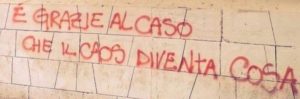 È GRAZIE AL CASO
CHE IL CAOS DIVENTA COSA